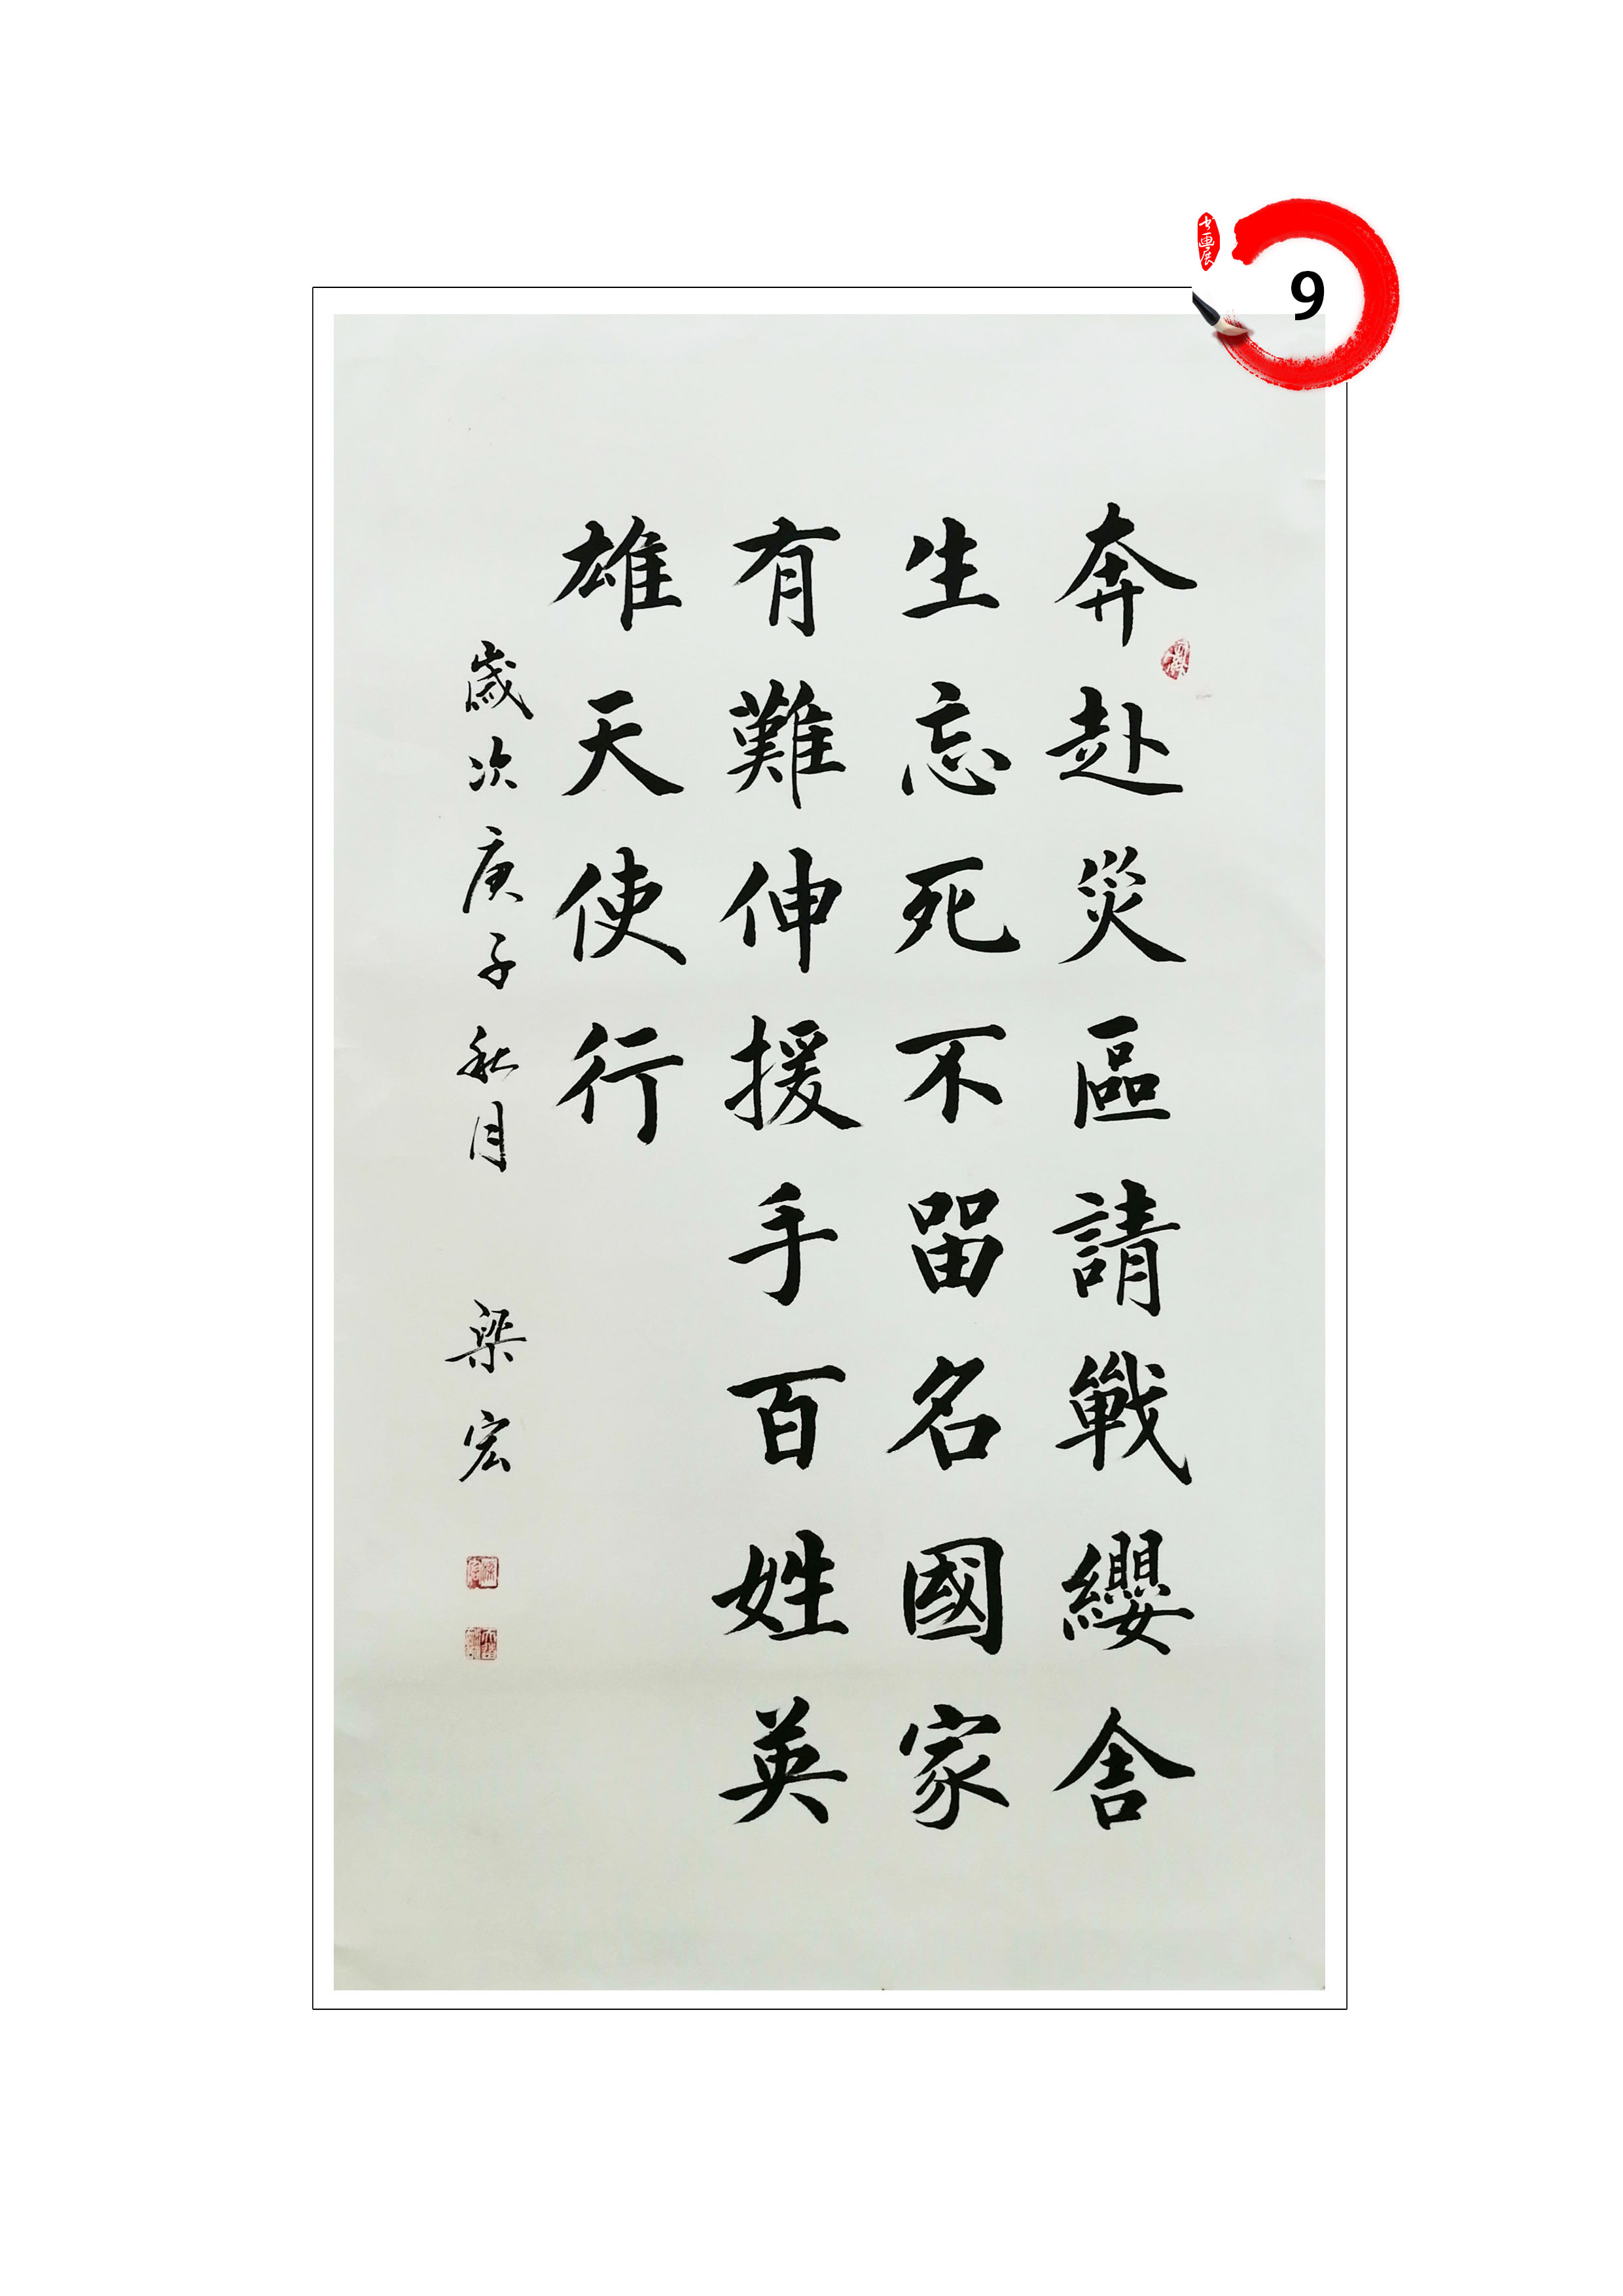 书画展
9
奔赴災區請戰纓舍
生忘死不留名國家
有難伸援手百姓英
雄天使行
歲次庚子秋月 梁宏